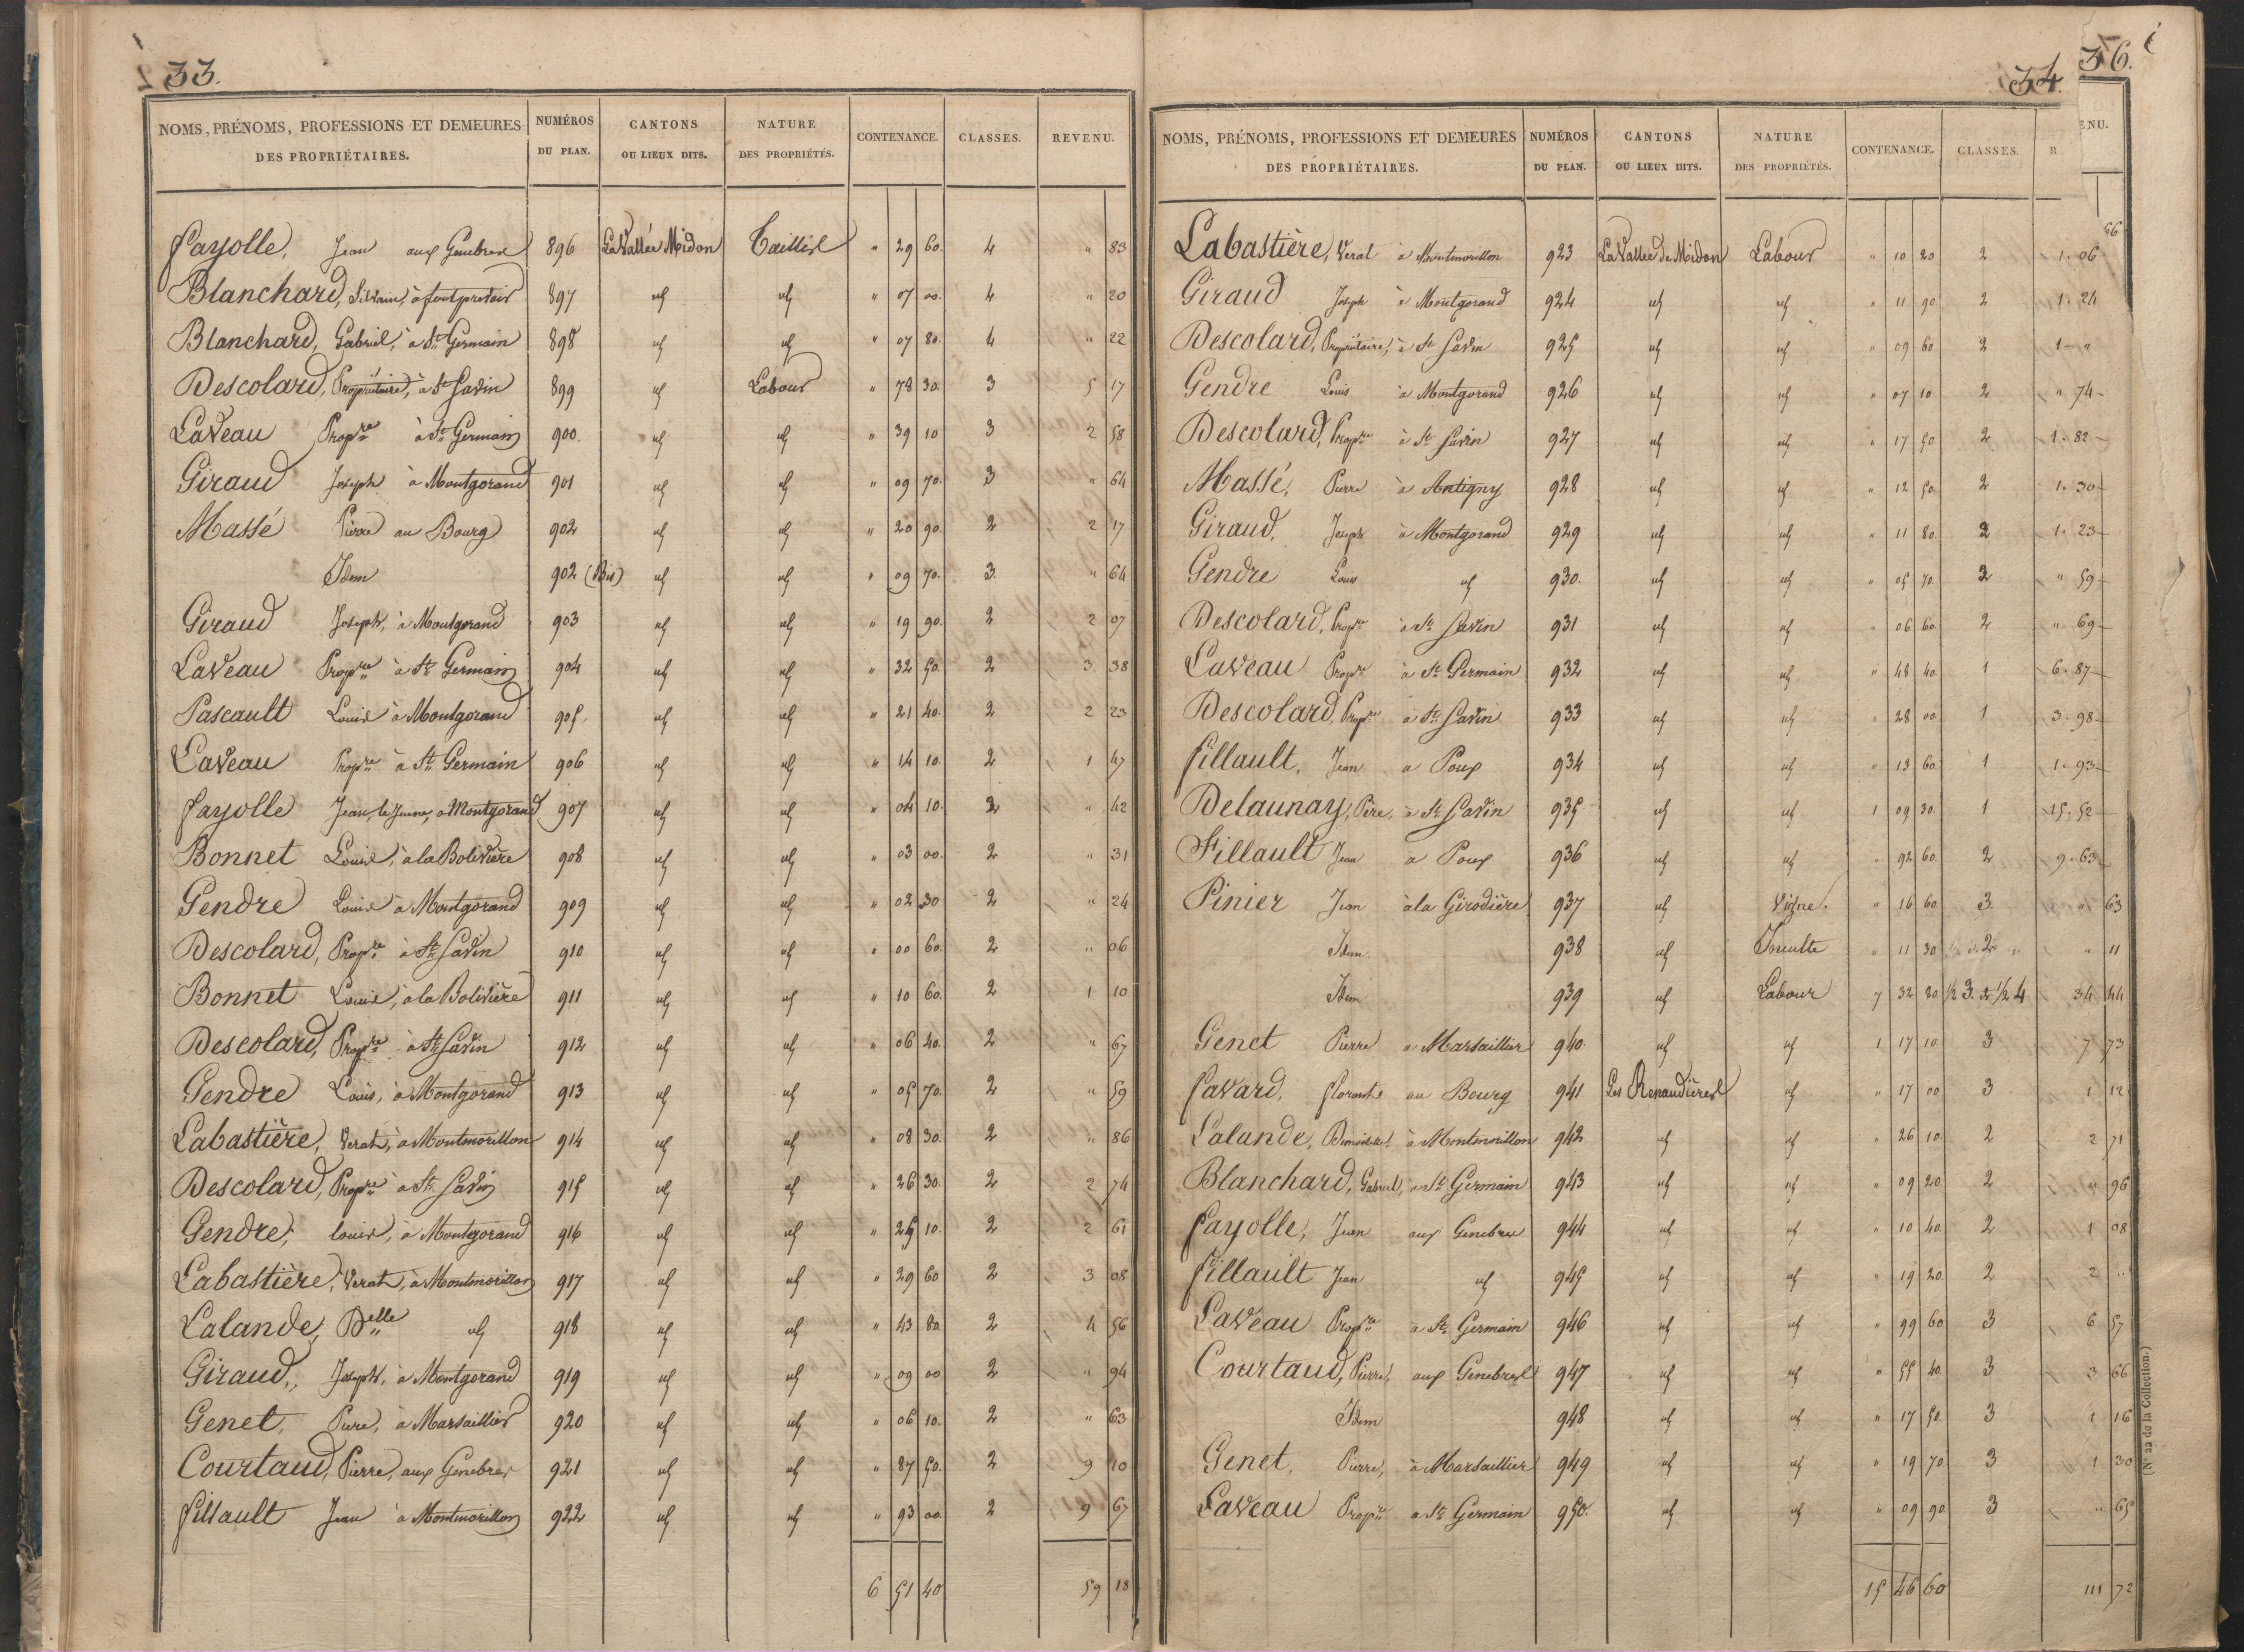 33.
NOMS, PRÉNOMS, PROFESSIONS ET DEMEURES DES PROPRIÉTAIRES. NUMÉROS DU PLAN. CANTONS OU LIEUX DITS. NATURE DES PROPRIÉTÉS. CONTENANCE. CLASSES. REVENU.
Fayolle, Jean aux Genebres 896 La Vallée Midon Taillis " 29 60. 4 " 83
Blanchard, Silvain, à 897 id id " 07 00. 4 " 20
Blanchard, Gabriel, à St Germain 898 id id " 07 80. 4 " 22
Descolard, Propriétaire, à St Savin 899 id Labour " 78 30. 3 5 17
Laveau Propre à St Germain 900. id id " 39 10 3 2 58
Giraud Joseph à Montgorand 901 id id " 09 70. 3 " 64
Massé Pierre au Bourg 902 id id " 20 90. 2 2 17
Idem 902 (Bis) id id " 09 70. 3. " 64
Giraud Joseph, à Montgorand 903 id id " 19 90. 2 2 07
Laveau Propre à St Germain 904 id id " 32 50. 2 3 38
Pascault Louis à Montgorand 905. id id " 21 40. 2 2 23
Laveau Propre à St Germain 906 id id " 14 10. 2 1 47
Fayolle Jean, le Jeune, à Montgorand 907 id id " 04 10. 2 " 42
Bonnet Louis, à la Bolivière 908 id id " 03 00. 2 " 31
Gendre Louis à Montgorand 909 id id " 02 30 2 " 24
Descolard, Propre à St Savin 910 id id " 00 60. 2 " 06
Bonnet Louis, à la Bolivière 911 id id " 10 60. 2 1 10
Descolard, Propre à St Savin 912 id id " 06 40. 2 " 67
Gendre Louis, à Montgorand 913 id id " 05 70. 2 " 59
Labastière, Verat, à Montmorillon 914 id id " 08 30. 2 " 86
Descolard, Propre à St Savin 915 id id " 26 30. 2 2 74
Gendre, louis, à Montgorand 916 id id " 25 10. 2 2 61
Labastière, Verat, à Montmorillon 917 id id " 29 60 2 3 08
Lalande, Delle id 918 id id " 43 80. 2 4 56
Giraud, Joseph, à Montgorand 919 id id " 09 00 2 " 94
Genet, Pierre, à Marsaillier 920 id id " 06 10. 2 " 63
Courtaud, Pierre, aux Genebres 921 id id " 87 50. 2 9 10
Fillault Jean à Montmorillon 922 id id " 93 00. 2 9 67
6 51 40 59 18
34. 36.
NOMS, PRÉNOMS, PROFESSIONS ET DEMEURES DES PROPRIÉTAIRES. NUMÉROS DU PLAN. CANTONS OU LIEUX DITS. NATURE DES PROPRIÉTÉS. CONTENANCE. CLASSES. R ENU.
66
Labastière, Verat à Montmorillon 923 La Vallée de Midon Labour " 10 20 2 1. 06
Giraud Joseph à Montgorand 924 id id " 11 90 2 1. 24
Descolard, Propriétaire, à St Savin 925 id id " 09 60 2 1 "
Gendre Louis à Montgorand 926 id id " 07 10 2 " 74
Descolard, Propre à St Savin 927 id id " 17 50 2 1. 82
Massé, Pierre à Antigny 928 id id " 12 50. 2 1. 30
Giraud, Joseph à Montgorand 929 id id " 11 80. 2 1. 23
Gendre Louis id 930. id id " 05 70. 2 " 59
Descolard, Propre à St Savin 931 id id " 06 60. 2 " 69
Laveau Propre à St Germain 932 id id " 48 40. 1 6. 87
Descolard, Propre à St Savin 933 id id " 28 00 1 3. 98
Fillault, Jean à Poux 934 id id " 13 60. 1 1. 93
Delaunay, Père, à St Savin 935 id id 1 09 30. 1 15. 52
Fillault Jean à Poux 936 id id " 92 60. 2 9. 63
Pinier Jean à la Girodière 937 id Vigne. " 16 60. 3. 63
Idem 938 id Inculte " 11 30 2 " 11
Idem 939 id Labour 7 32 80 ½ 3. & ½ 4 34 44
Genet Pierre à Marsaillier 940. id id 1 17 10. 3 7 73
Favard, florent au Bourg 941 Les Renaudières id " 17 00 3 1 12
Lalande, Demoiselle, à Montmorillon 942 id id " 26 10. 2 2 71
Blanchard, Gabriel, à St Germain 943 id id " 09 20. 2 " 96
Fayolle, Jean aux Genebres 944 id id " 10 40. 2 1 08
Fillault Jean id 945 id id " 19 20. 2 2 "
Laveau Propre à St Germain 946 id id " 99 60 3 6 57
Courtaud, Pierre, aux Genebres 947 id id " 55 40. 3 3 66
Idem 948 id id " 17 50. 3 1 16
Genet, Pierre, à Marsaillier 949 id id " 19 70. 3 1 30
Laveau Propre à St Germain 950. id id " 09 90. 3 " 65
15 46 60 111 72
(N° 22 de la Collection.)